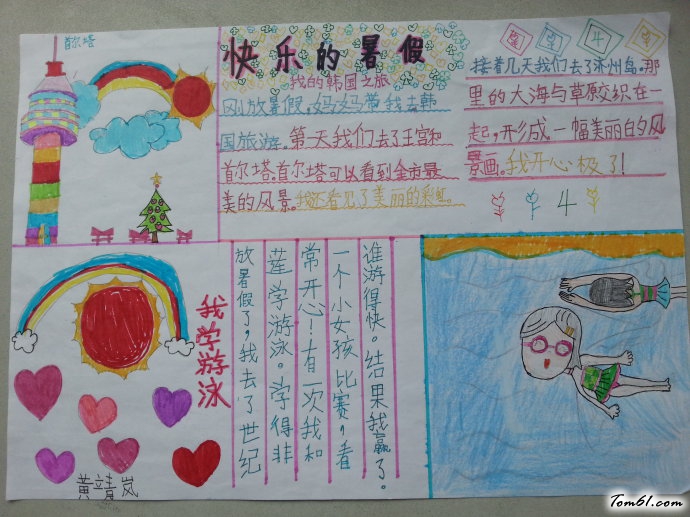 首尔塔
快乐的暑假
我的韩国之旅
刚放暑假,妈妈带我去韩
国旅游。第一天我们去了王宫和
首尔塔。首尔塔可以看到全市最
美的风景。我还看见了美丽的彩虹。
接着几天我们去了济州岛。那
里的大海与草原交织在一
起,形成一幅美丽的风
景画。我开心极了!
4
我学游泳
放暑假了,我去了世纪
莲学游泳。学得非
常开心!有一次我和
一个小女孩比赛,看
谁游得快。结果我赢了。
黄靖岚
Tom61.com